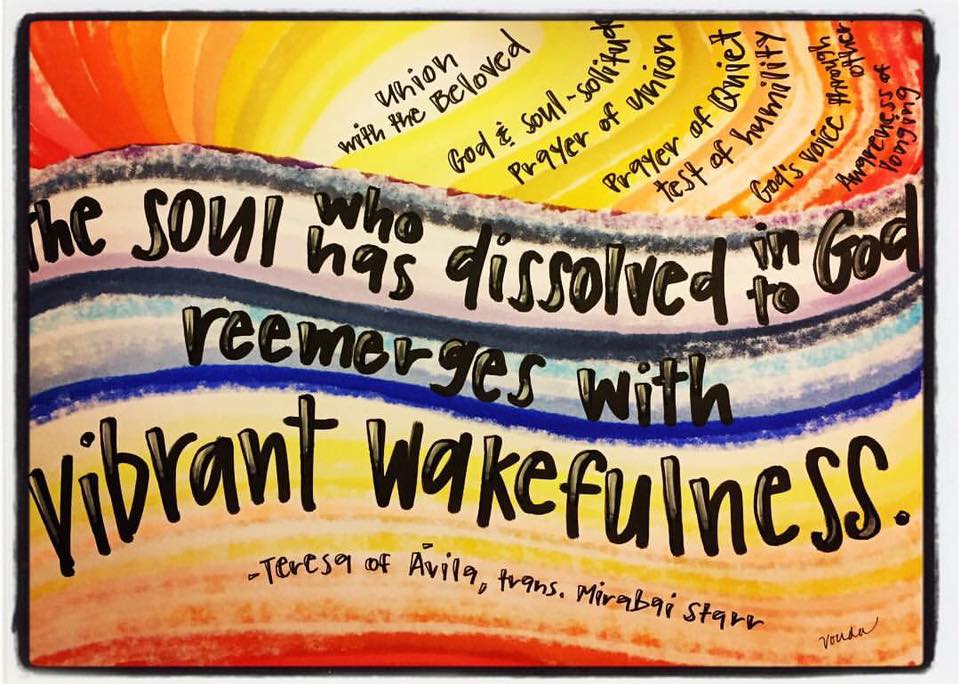 union
with the Beloved
God & soul ~ solitude
Prayer of union
Prayer of Quiet
test of humility
God's voice through
others
Awareness of
longing
the soul who has dissolved in to God
reemerges with
vibrant wakefulness.
- Teresa of Āvila, trans. Mirabai Starr
vonda